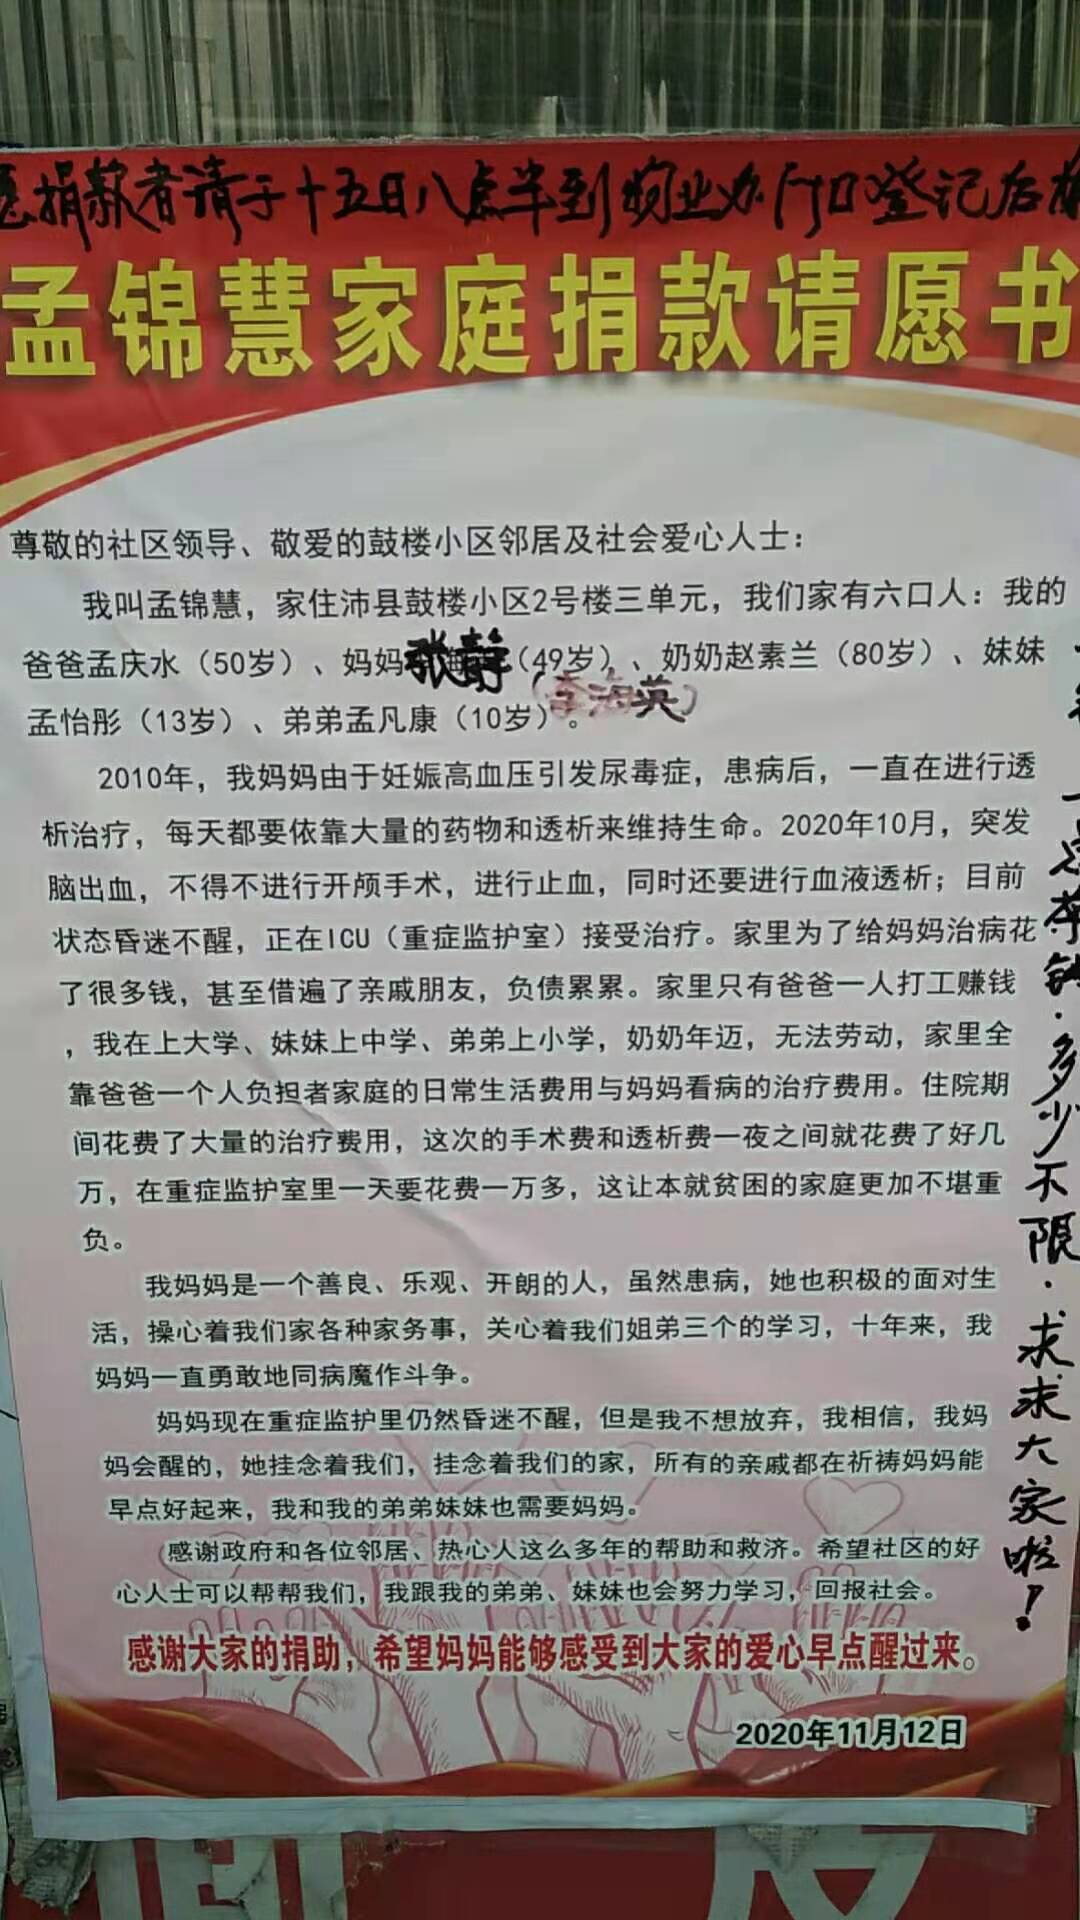 愿捐款者请于十五日八点半到物业办门口登记后
孟锦慧家庭捐款请愿书
尊敬的社区领导、敬爱的鼓楼小区邻居及社会爱心人士：
我叫孟锦慧，家住沛县鼓楼小区2号楼三单元，我们家有六口人：我的
爸爸孟庆水（50岁）、妈妈张静（49岁）、奶奶赵素兰（80岁）、妹妹
（李海英）
孟怡彤（13岁）、弟弟孟凡康（10岁）。
2010年，我妈妈由于妊娠高血压引发尿毒症，患病后，一直在进行透
析治疗，每天都要依靠大量的药物和透析来维持生命。2020年10月，突发
脑出血，不得不进行开颅手术，进行止血，同时还要进行血液透析；目前
状态昏迷不醒，正在ICU（重症监护室）接受治疗。家里为了给妈妈治病花
了很多钱，甚至借遍了亲戚朋友，负债累累。家里只有爸爸一人打工赚钱
，我在上大学、妹妹上中学、弟弟上小学，奶奶年迈，无法劳动，家里全
靠爸爸一个人负担者家庭的日常生活费用与妈妈看病的治疗费用。住院期
间花费了大量的治疗费用，这次的手术费和透析费一夜之间就花费了好几
万，在重症监护室里一天要花费一万多，这让本就贫困的家庭更加不堪重
负。
我妈妈是一个善良、乐观、开朗的人，虽然患病，她也积极的面对生
活，操心着我们家各种家务事，关心着我们姐弟三个的学习，十年来，我
妈妈一直勇敢地同病魔作斗争。
妈妈现在重症监护里仍然昏迷不醒，但是我不想放弃，我相信，我妈
妈会醒的，她挂念着我们，挂念着我们的家，所有的亲戚都在祈祷妈妈能
早点好起来，我和我的弟弟妹妹也需要妈妈。
感谢政府和各位邻居、热心人这么多年的帮助和救济。希望社区的好
心人士可以帮帮我们，我跟我的弟弟、妹妹也会努力学习，回报社会。
感谢大家的捐助，希望妈妈能够感受到大家的爱心早点醒过来。
2020年11月12日
多少不限·求求大家啦！